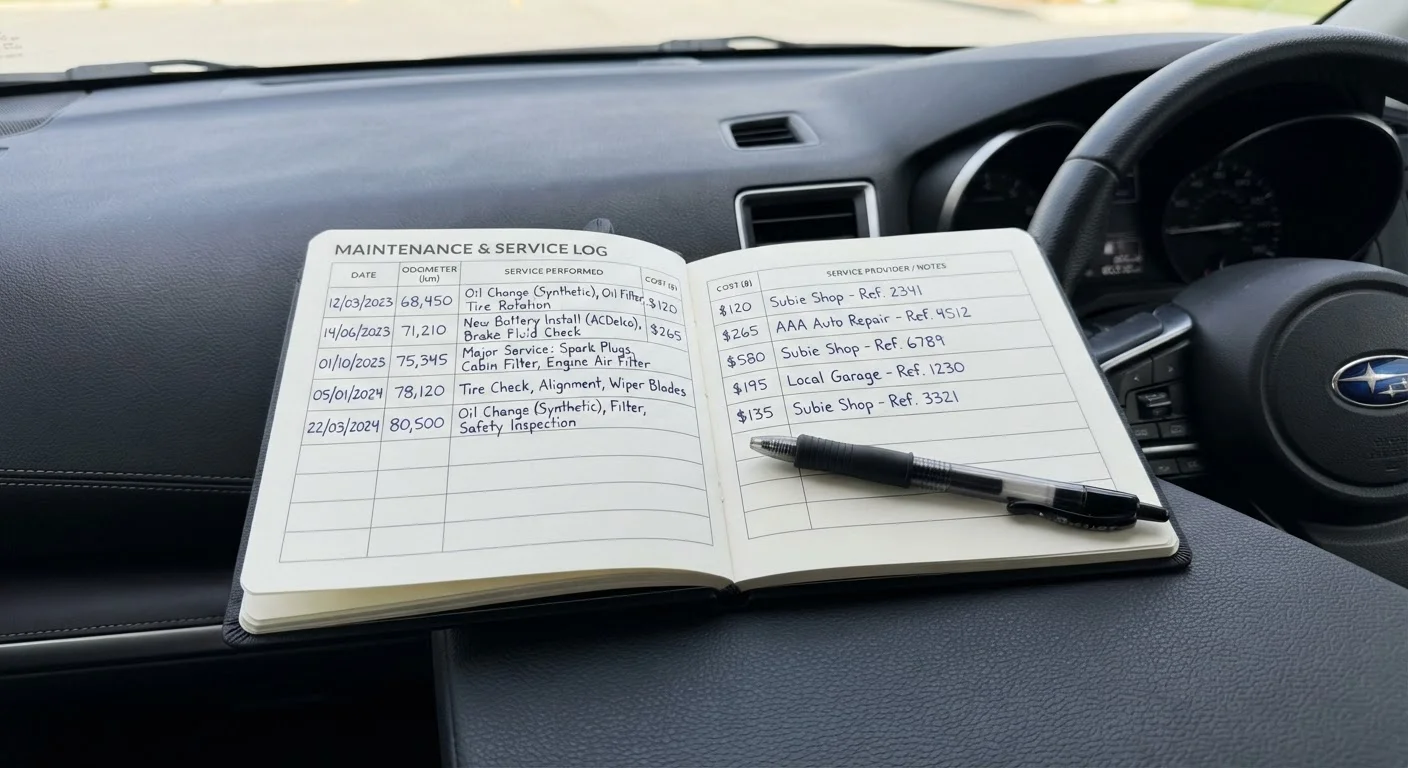 MAINTENANCE & SERVICE LOG
DATE ODOMETER (km) SERVICE PERFORMED COST ($)
12/03/2023 68,450 Oil Change (Synthetic), Oil Filter, $120
Tire Rotation
14/06/2023 71,210 New Battery Install (ACDelco), $265
Brake Fluid Check
01/10/2023 75,345 Major Service: Spark Plugs,
Cabin Filter, Engine Air Filter
05/01/2024 78,120 Tire Check, Alignment, Wiper Blades
22/03/2024 80,500 Oil Change (Synthetic), Filter,
Safety Inspection
COST ($) SERVICE PROVIDER / NOTES
$120 Subie Shop - Ref. 2341
$265 AAA Auto Repair - Ref. 4512
$580 Subie Shop - Ref. 6789
$195 Local Garage - Ref. 1230
$135 Subie Shop - Ref. 3321